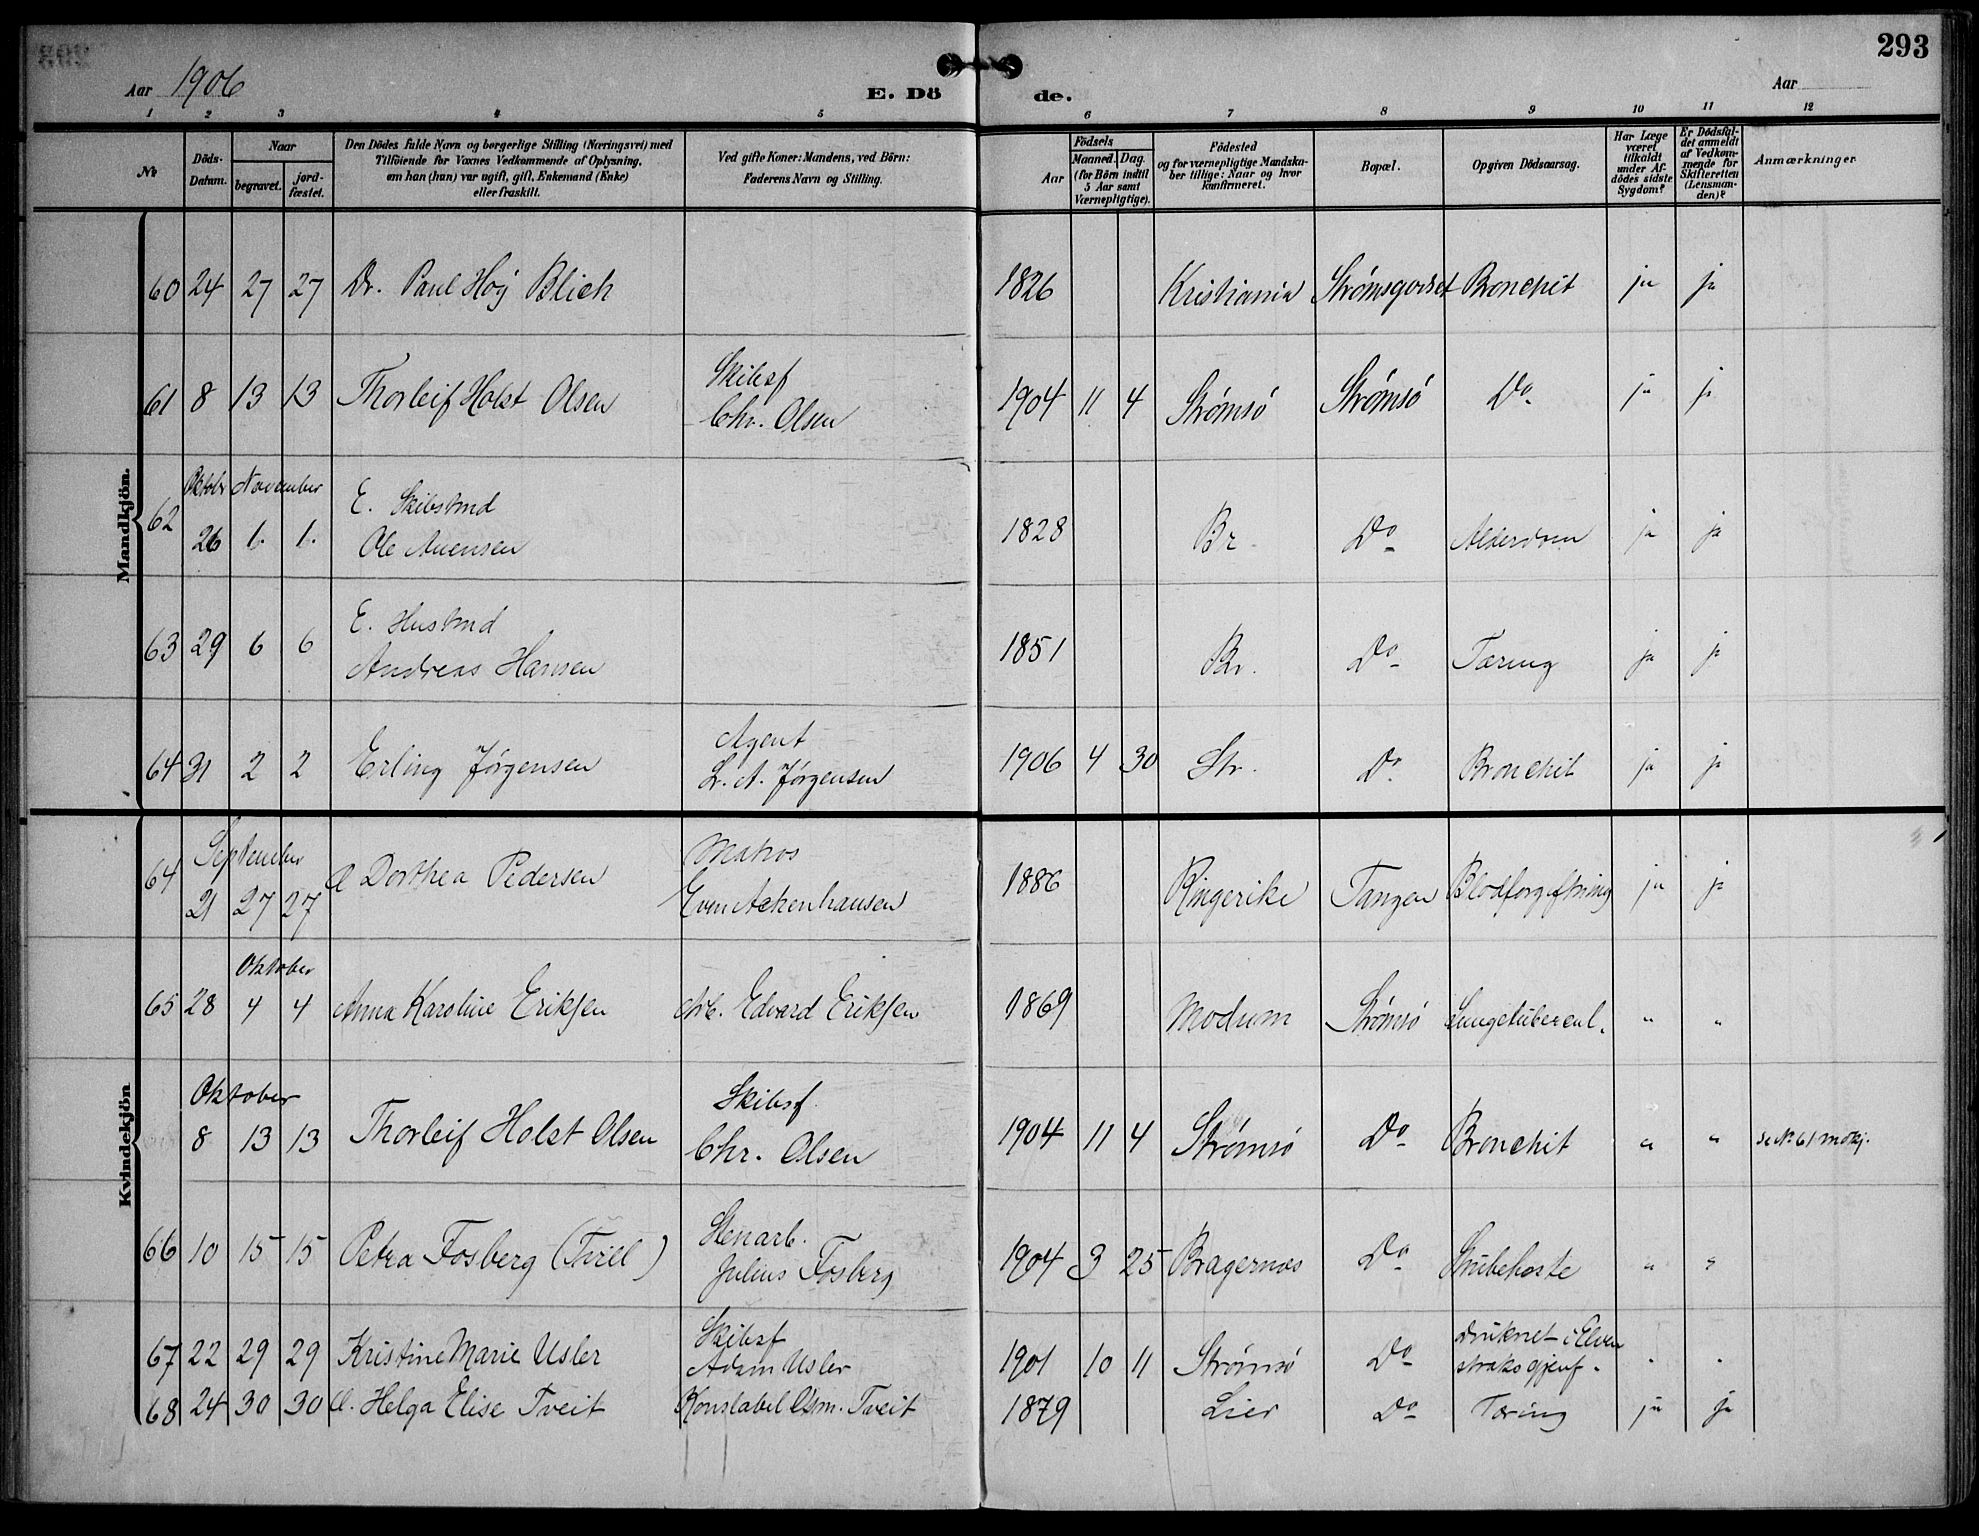 293
Aar 1906
E. Dö
de.
Aar
1 2 3 4 5 6 7 8 9 10 11 12
No
Döds-Datum.
Naar
begravet.
jord-fæstet.
Den Dödes fulde Navn og borgerlige Stilling (Næringsvei) med
Tilföiende for Voxnes Vedkommende af Oplysning,
om han (hun) var ugift, gift, Enkemand (Enke)
eller fraskilt.
Ved gifte Koner: Mandens, ved Börn:
Faderens Navn og Stilling.
Födsels
Aar
Maaned.
Dag.
(for Börn indtil
5 Aar samt
Værnepligtige).
Födested
og for værnepligtige Mandska-
ber tillige: Naar og hvor
konfirmeret.
Bopæl.
Opgiven Dödsaarsag.
Har Læge
været
tilkaldt
under Af-
dödes sidste
Sygdom?
Er Dödsfal-
det anmeldt
af Vedkom-
mende for
Skifteretten
(Lensman-
den)?
Anmærkninger
Mandkjön.
60 24 27 27 Dr. Paul Høy Blich 1826 Kristiania Strømsgodset Bronchit ja ja
Skibsf
61 8 13 13 Thorleif Holst Olsen Chr. Olsen 1904 11 4 Strømsö Strømsö Do ja ja
Oktober November E. Skibstmd
62 26 1. 1. Ole 1828 Br. Do Alderdom ja ja
E. Hustmd
63 29 6 6 Andreas Hansen 1851 Br. Do Tæring ja ja
Agent
64 31 2 2 Erling Jørgensen L. A. Jørgensen 1906 4 30 Str. Do Bronchit ja ja
Kvindekjön
September Matros
64 21 27 27 Dorthea Pedersen Even 1886 Ringerike Tangen Blodforgiftning ja ja
Oktober
65 28 4 4 Anna Karoline Eriksen Arb. Edvard Eriksen 1869 Modum Strømsö Lungetubercul. " "
Oktober Skibsf.
8 13 13 Thorleif Holst Olsen Chr. Olsen 1904 11 4 Strømsö Do Bronchit " " se No 61 mdkj.
Stenarb.
66 10 15 15 Petra Fosberg ( ) Julius Fosberg 1904 3 25 Bragernæs Do Strubehoste " "
Skibsf druknet i Elven
67 22 29 29 Kristine Marie Usler Adam Usler 1901 10 11 Strømsö Do straks gjenf. " "
68 24 30 30 Helga Elise Tveit Konstabel Tveit 1879 Lier Do Tæring ja ja